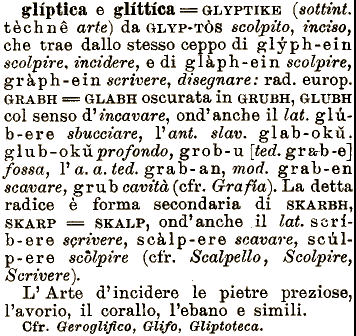 glíptica e glíttica = GLYPTIKE (sottint.
tèchnê arte) da GLYP-TÒS scolpito, inciso,
che trae dallo stesso ceppo di glýph-ein
scolpire, incidere, e di glàph-ein scolpire,
gràph-ein scrivere, disegnare: rad. europ.
GRABH = GLABH oscurata in GRUBH, GLUBH
col senso d'incavare, ond'anche il lat. glú-
b-ere sbucciare, l'ant. slav. glab-okŭ.
glub-okŭ profondo, grob-u [ted. grab-e]
fossa, l'a. a. ted. grab-an, mod. grab-en
scavare, grub cavità (cfr. Grafia). La detta
radice è forma secondaria di SKARBH,
SKARP = SKALP, ond'anche il lat. scrí-
b-ere scrivere, scàlp-ere scavare, scúl-
p-ere scôlpire (cfr. Scalpello, Scolpire,
Scrivere).
L'Arte d'incidere le pietre preziose,
l'avorio, il corallo, l'ebano e simili.
Cfr. Geroglifico, Glifo, Gliptoteca.